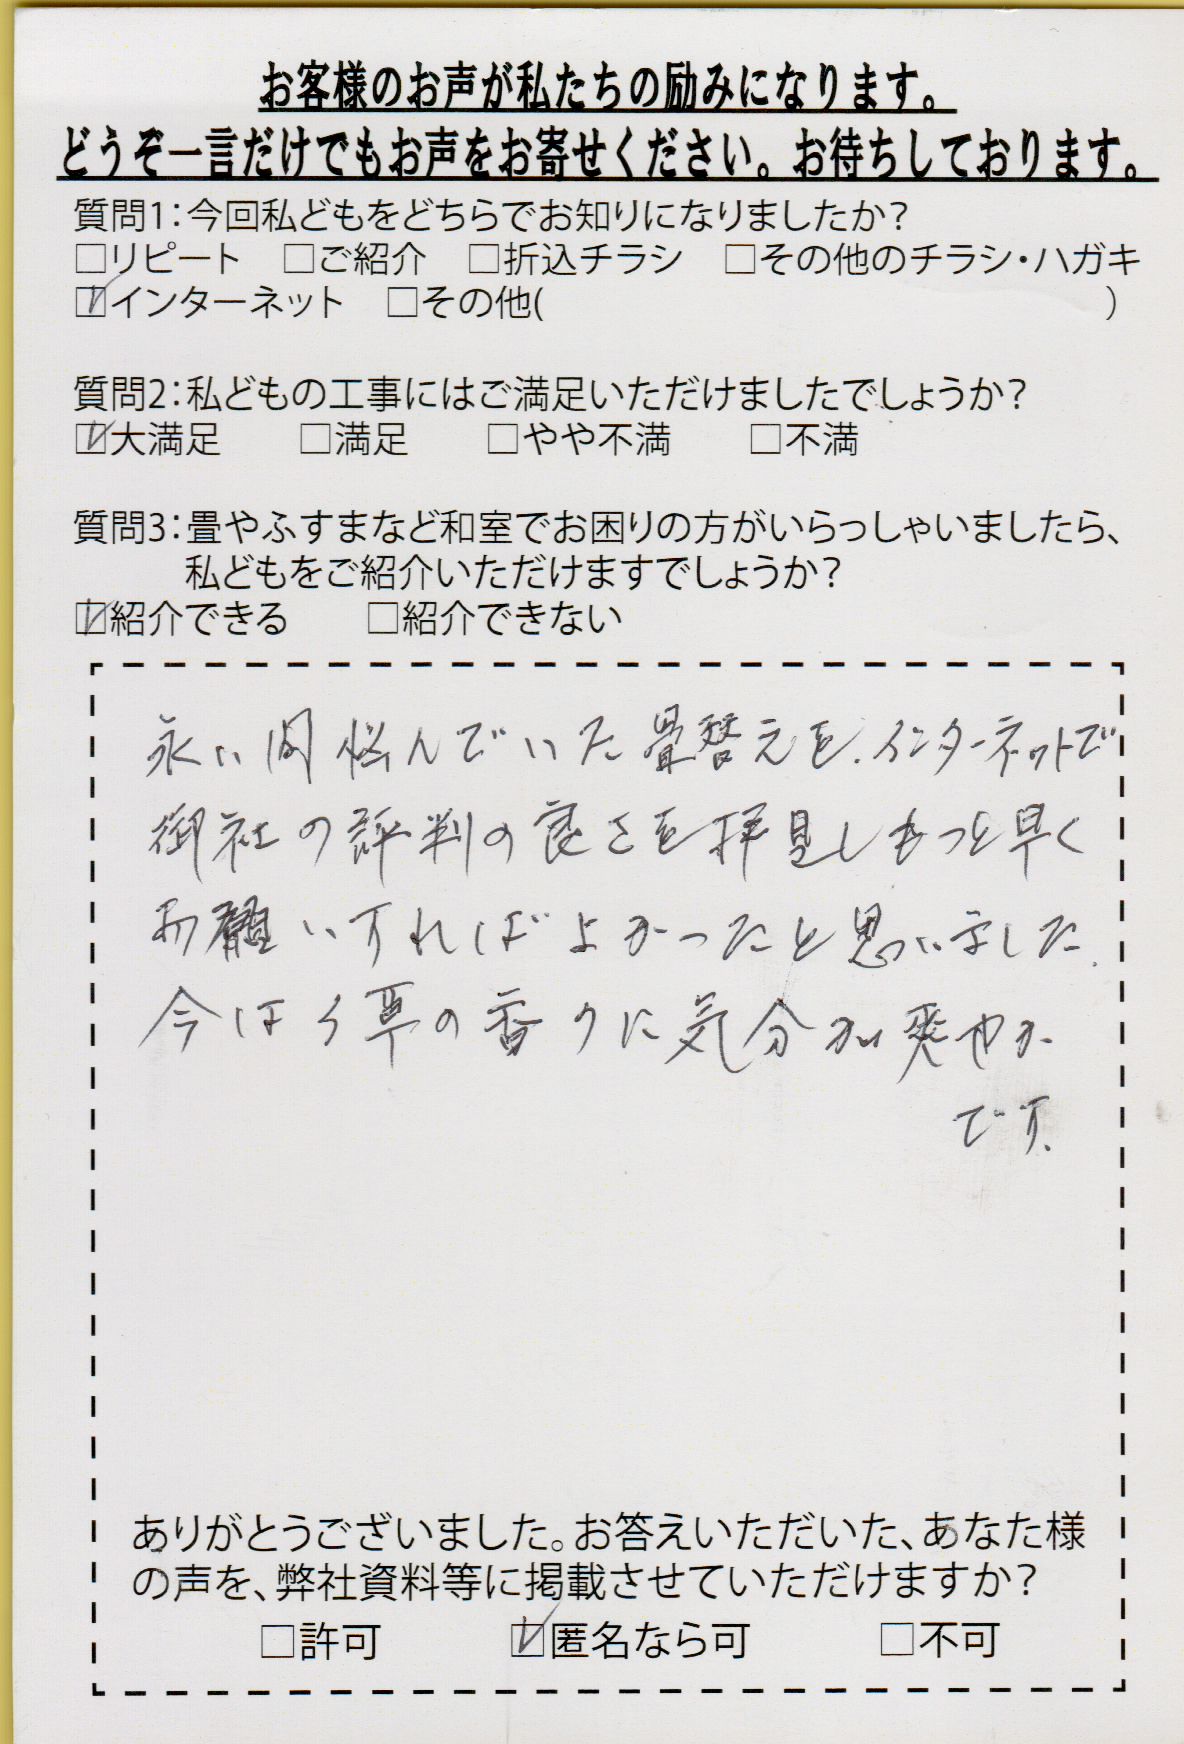 お客様のお声が私たちの励みになります。
どうぞ一言だけでもお声をお寄せください。お待ちしております。
質問1：今回私どもをどちらでお知りになりましたか？
□リピート　□ご紹介　□折込チラシ　□その他のチラシ・ハガキ
☑インターネット　□その他(　　　　　　　　)
質問2：私どもの工事にはご満足いただけましたでしょうか？
☑大満足　□満足　□やや不満　□不満
質問3：畳やふすまなど和室でお困りの方がいらっしゃいましたら、
私どもをご紹介いただけますでしょうか？
☑紹介できる　□紹介できない
永い間悩んでいた畳替えを、インターネットで
御社の評判の良さを拝見しもっと早く
お願いすればよかったと思いました。
今はい草の香りに気分が爽やか
です。
ありがとうございました。お答えいただいた、あなた様
の声を、弊社資料等に掲載させていただけますか？
□許可　☑匿名なら可　□不可